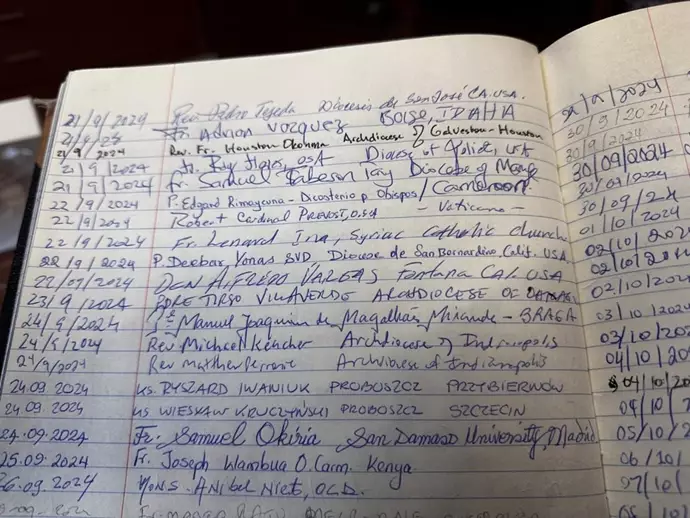 21/9/2024 Rev. Pedro Tejeda Diocesis de San José CA. USA.
21/9/24 Fr. Adrian Vazquez BOISE, IDAHA
21/9/2024 Rev. Fr. Houston Okohma Archdiocese of Galveston-Houston
21/9/2024 fr. Ray Flores, OSA Diocese of Joliet, USA
21/9/2024 fr. Samuel Diocese of / Cameroon
22/9/2024 P. Edgard Rimaycuna - Dicasterio p Obispos/
22/9/2024 Robert Cardinal PREVOST, O.S.A - Vaticano -
22/9/2024 Fr. Lenard Ina, Syriac Catholic church
22/9/2024 P. Deebar Yonas SVD, Diocese de San Bernardino, Calif. USA
22/09/2024 DON ALFREDO VARGAS Fontana CAL. USA
23/9/2024 PDRE TIRSO VILLAVERDE ARCHDIOCESE OF
24/9/2024 Pe Manuel Joaquim de Magalhães Miranda - BRAGA
24/9/2024 Rev Michael Keucher Archdiocese of Indianapolis
24/9/2024 Rev Matthew Perronie Archdiocese of Indianapolis
24.09 2024 KS. RYSZARD IWANIUK PROBOSZCZ PRZYBIERNÓW
24.09 2024 KS WIESŁAW KRUCZYŃSKI PROBOSZCZ SZCZECIN
24.09.2024 Fr. Samuel Okiria San Damaso University, Madrid
25.09.2024 Fr. Joseph Wambua O. Carm. Kenya
26.09.2024 MONS. Anibal Nieto, OCD.
30/9/2024
30/9/2024
30/09/2024
30/09/2024
30/09/24
01/10/2024
02/10/2024
02/10/202
02/10/20
03/10/202
03/10/20
04/10/20
04/10/20
04/10/2
05/10/2
06/10/
07/10/